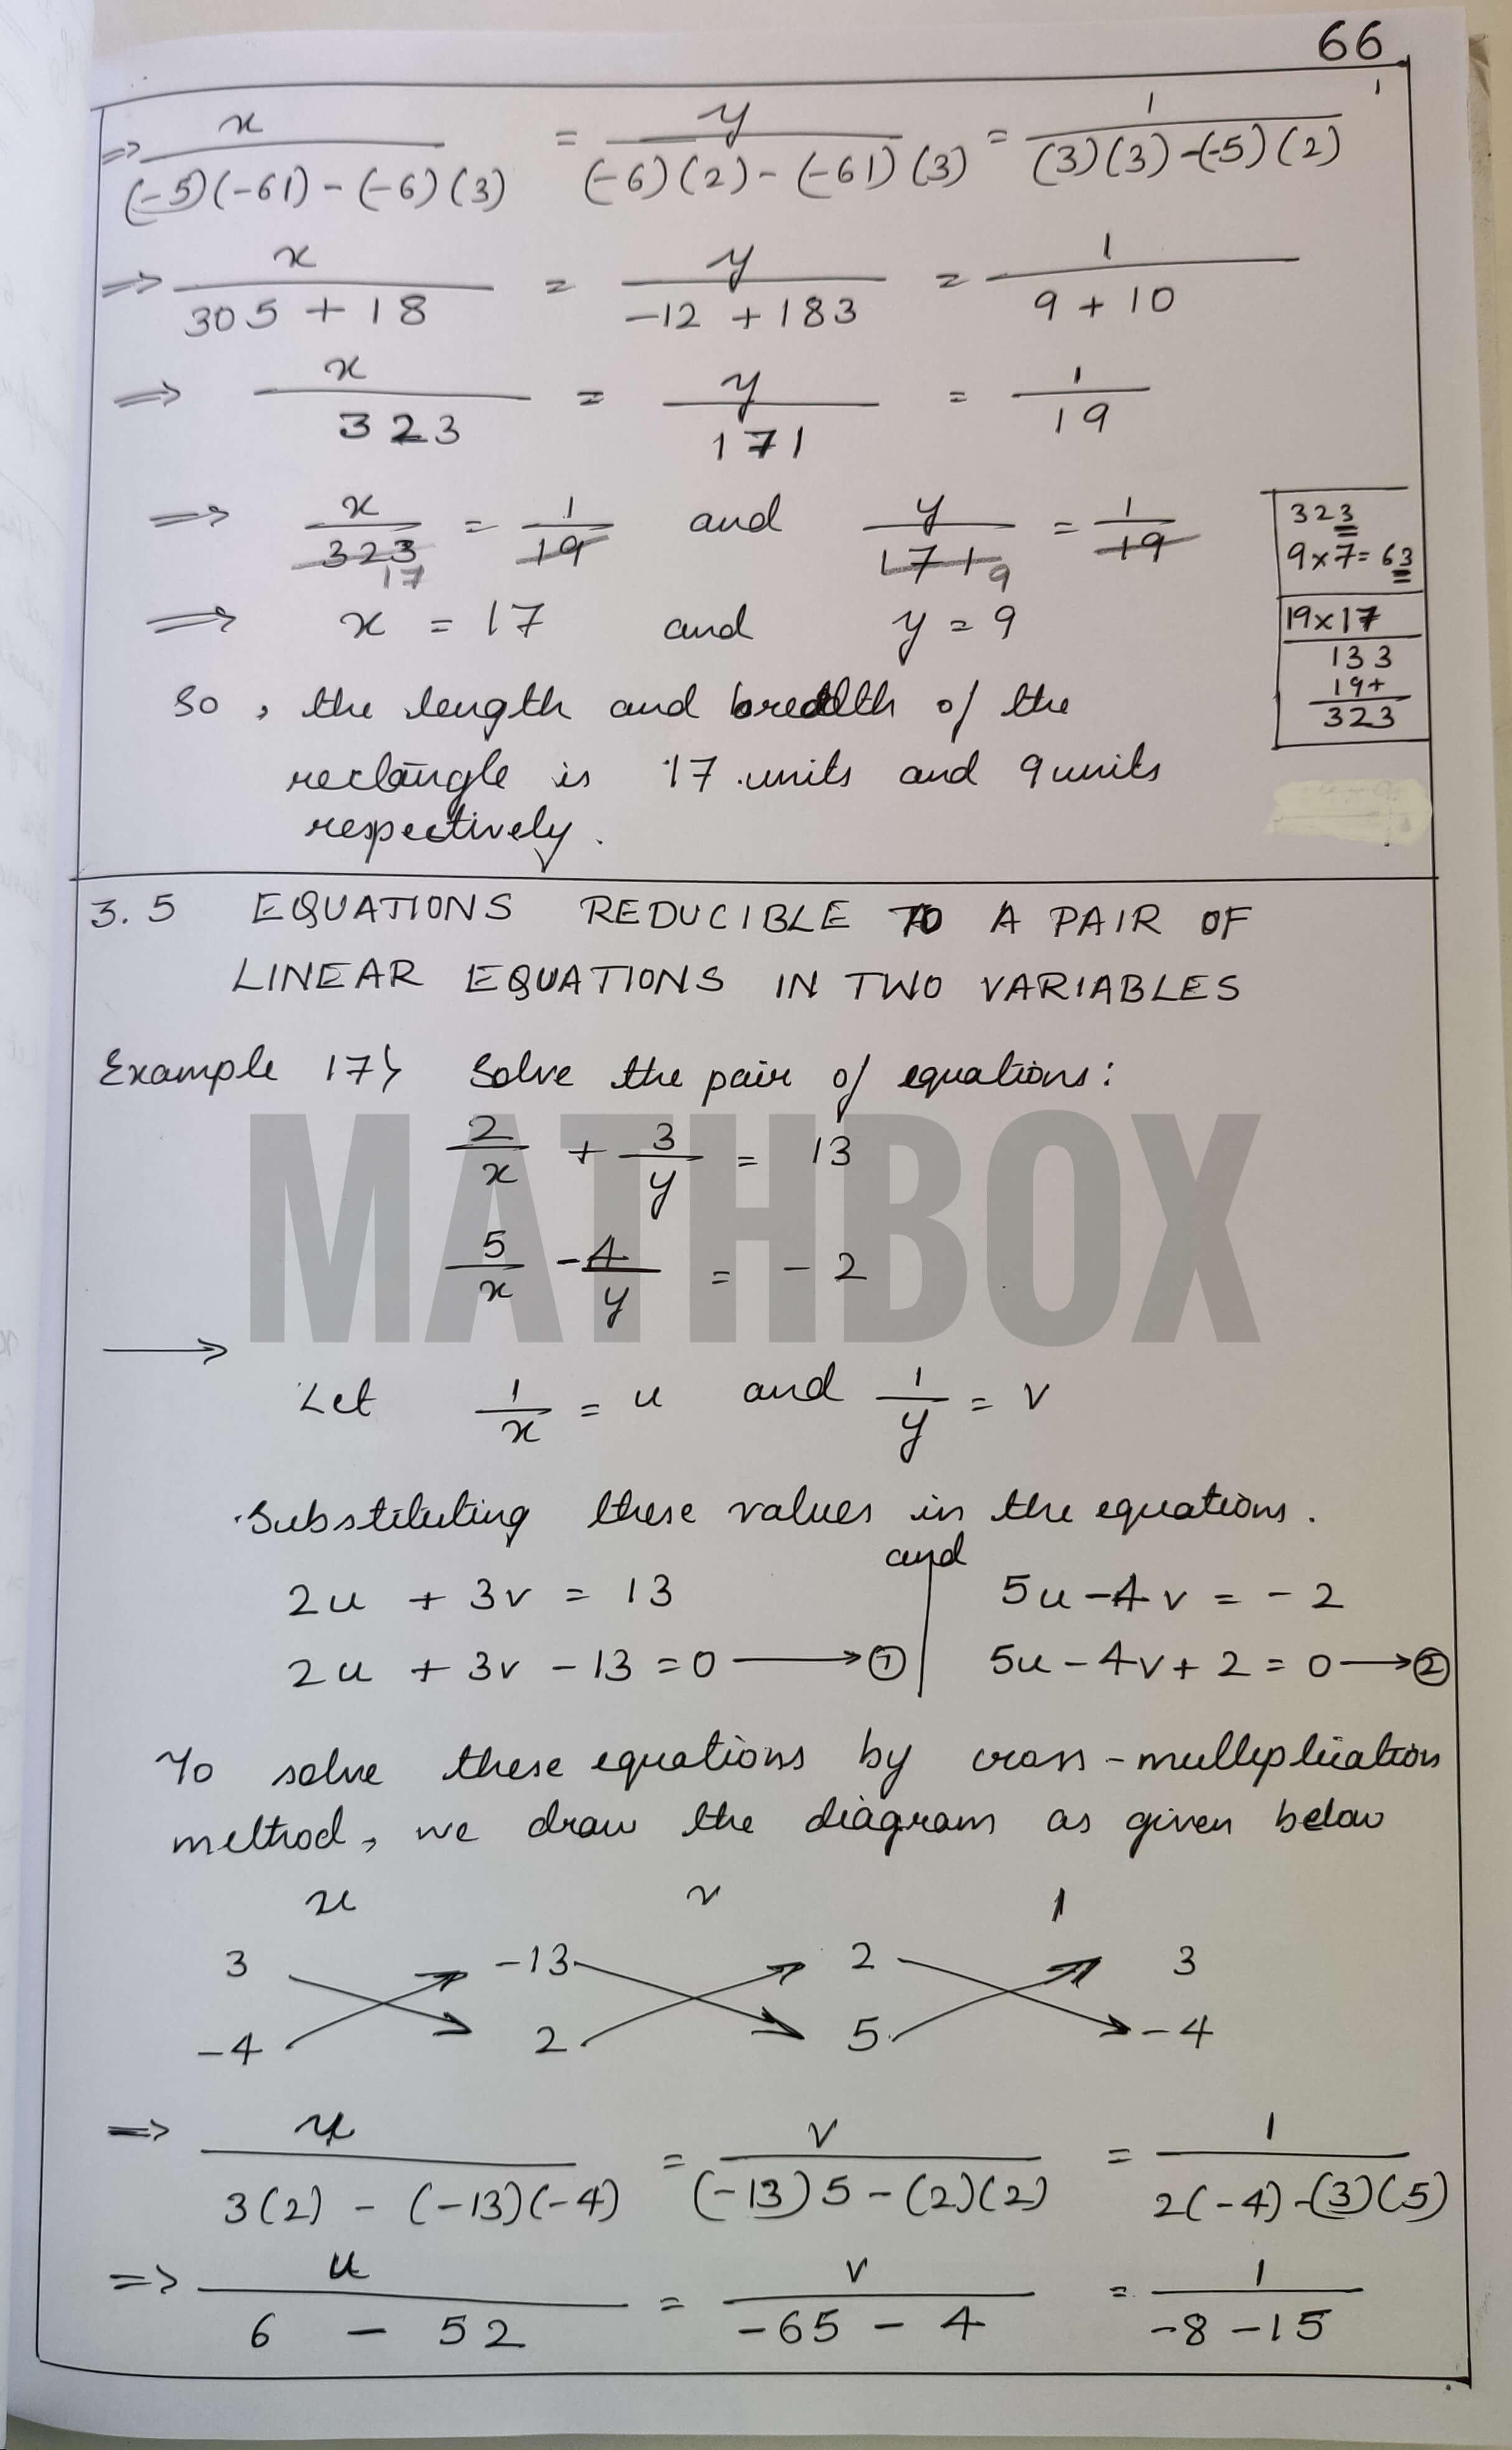 66
⇒ x/((-5)(-61) - (-6)(3)) = y/((-6)(2) - (-61)(3)) = 1/((3)(3) - (-5)(2))
⇒ x/(305 + 18) = y/(-12 + 183) = 1/(9 + 10)
⇒ x/323 = y/171 = 1/19
⇒ x/323 = 1/19 and y/171 = 1/19
17 9
⇒ x = 17 and y = 9
323
9×7=63
19×17
133
19+
323
So, the length and breadth of the
rectangle is 17 units and 9 units
respectively.
3.5 EQUATIONS REDUCIBLE TO A PAIR OF
LINEAR EQUATIONS IN TWO VARIABLES
Example 17} Solve the pair of equations:
2/x + 3/y = 13
5/x - 4/y = -2
MATHBOX
→
Let 1/x = u and 1/y = v
Substituting these values in the equations.
and
2u + 3v = 13 | 5u - 4v = -2
2u + 3v - 13 = 0 → ① | 5u - 4v + 2 = 0 → ②
To solve these equations by cross-multiplication
method, we draw the diagram as given below
u v 1
3 -13 2 3
-4 2 5 -4
⇒ u/(3(2) - (-13)(-4)) = v/((-13)5 - (2)(2)) = 1/(2(-4) - (3)(5))
⇒ u/(6 - 52) = v/(-65 - 4) = 1/(-8 - 15)